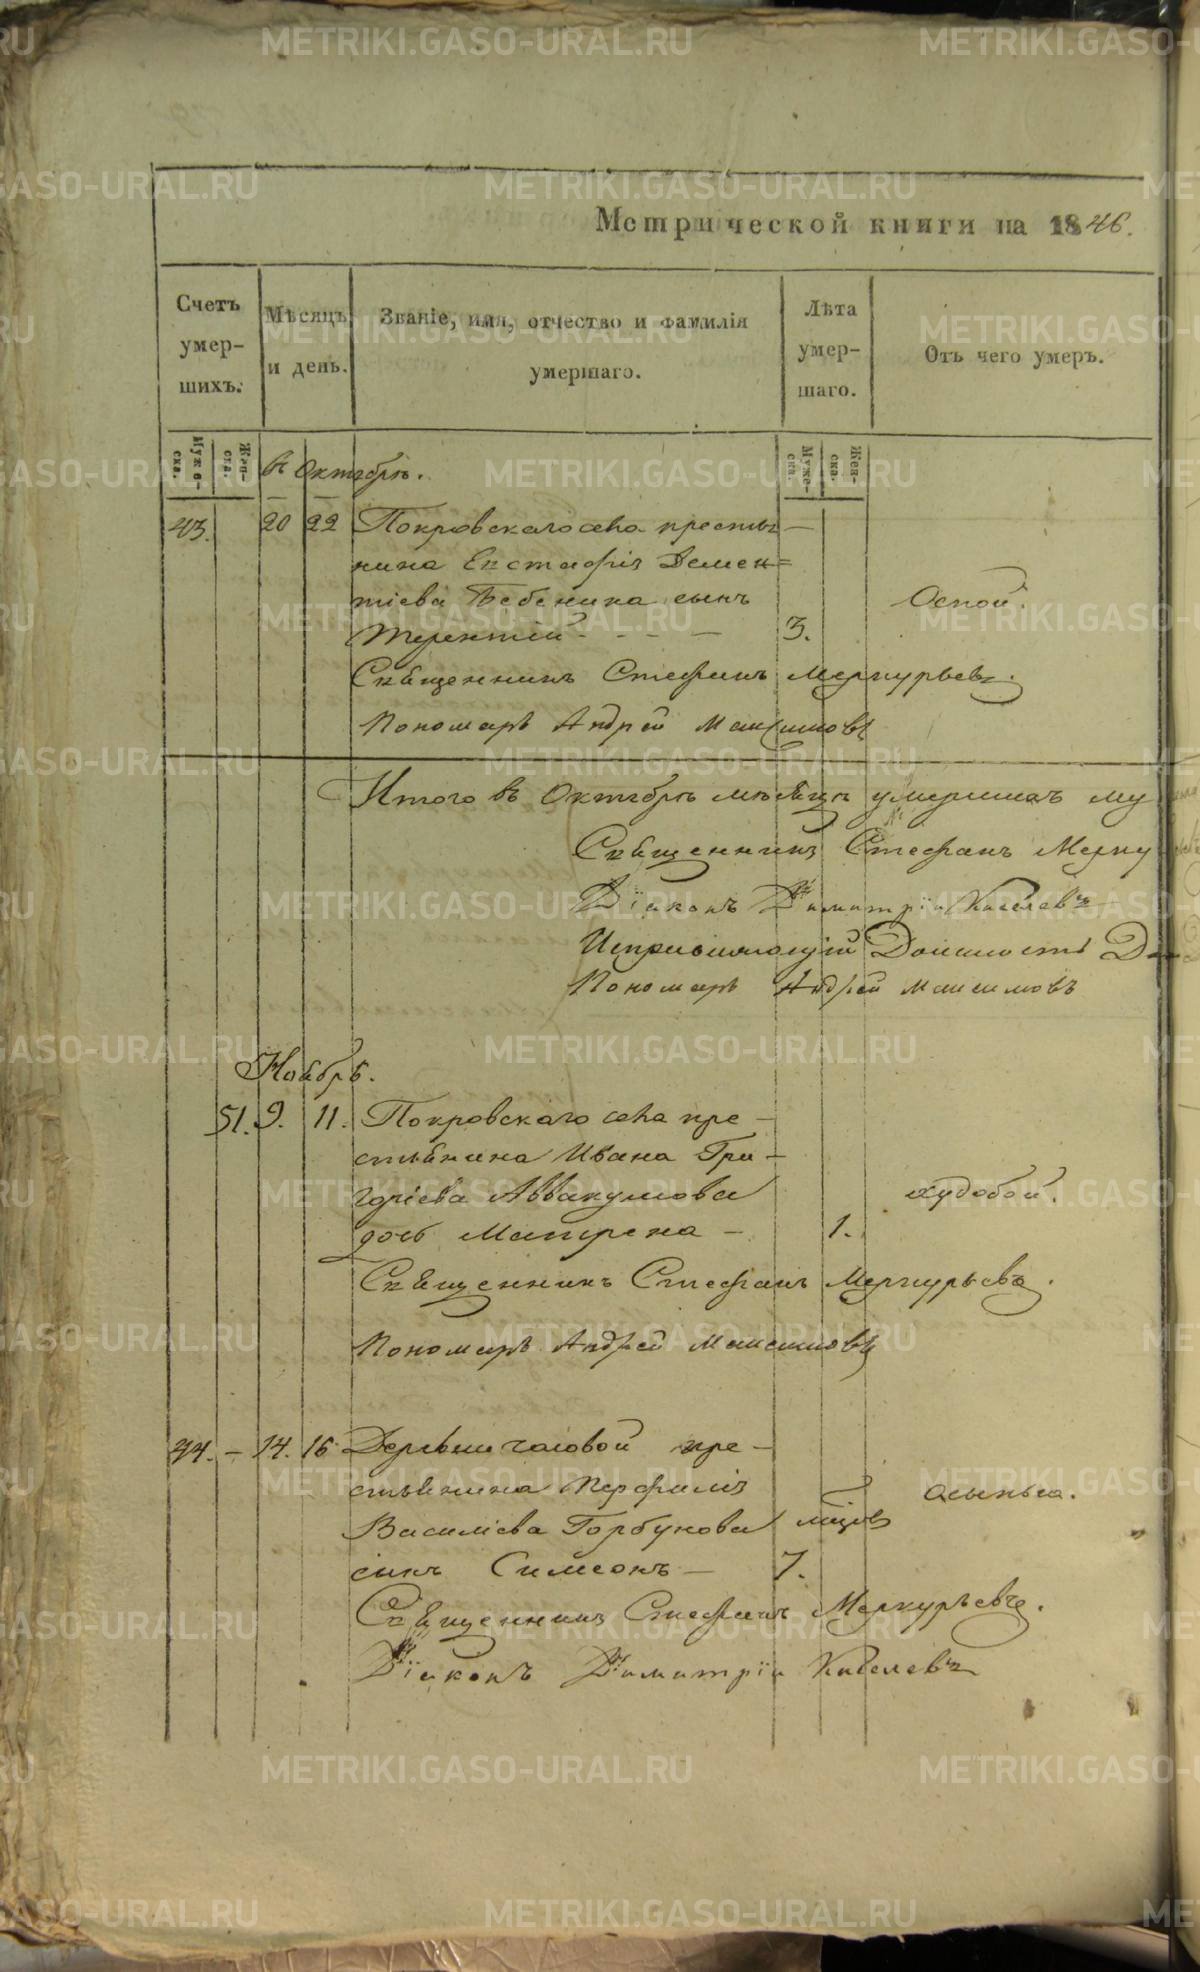 Метрической книги на 1846.
Счетъ умер- шихъ.
Мѣсяцъ и день.
Званіе, имя, отчество и фамилія умершаго.
Лѣта умер- шаго.
Отъ чего умеръ.
Муже- ска.
Жен- ска.
Муже- ска.
Жен- ска.
въ Октябрѣ.
43. 20 22 Покровскаго села крестья-
нина Евстафія Демен=
тіева сынъ
Терентій - - - - 3.
Оспой.
Священникъ Стефанъ Меркурьевъ.
Пономарь Андрей Максимовъ
Итого въ Октябрѣ мѣсяцѣ умершихъ му
Священникъ Стефанъ Мерку
Діаконъ Димитрій Киселевъ
Исправляющій Должность
Пономарь Андрей Максимовъ
Ноябрь.
51. 9. 11. Покровскаго села кре-
стьянина Ивана Гри-
горіева Аввакумова
дочь Матрена - 1.
худобой.
Священникъ Стефанъ Меркурьевъ.
Пономарь Андрей Максимовъ
44. - 14. 16 Деревни Часовой кре-
стьянина Перфилія
Василіева Горбунова
сынъ Симеонъ - 7.
Священникъ Стефанъ Меркурьевъ.
Діаконъ Димитрій Киселевъ
METRIKI.GASO-URAL.RU